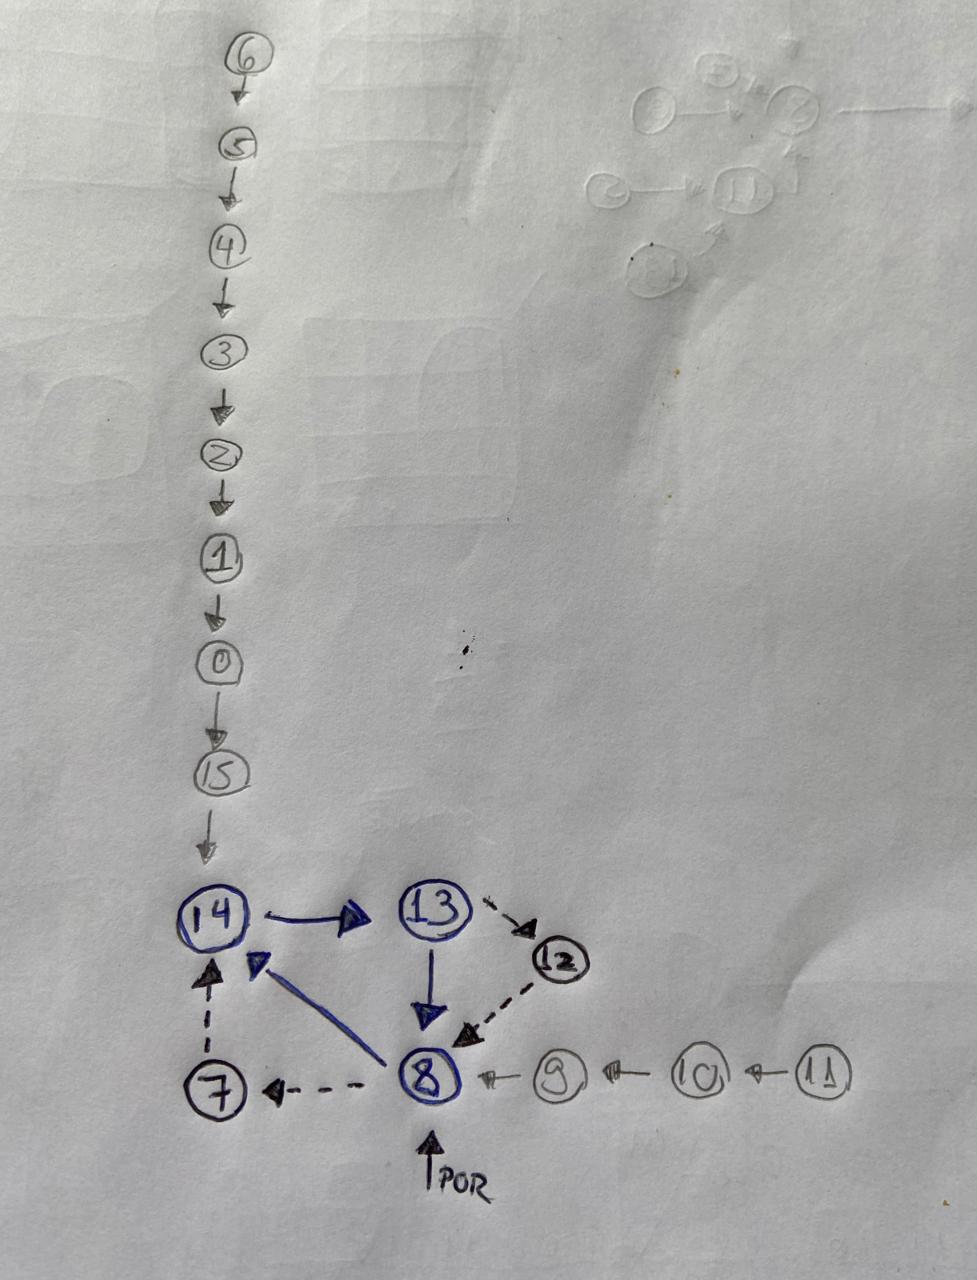 6
5
4
3
2
1
0
15
14 13
12
7 8 9 10 11
POR